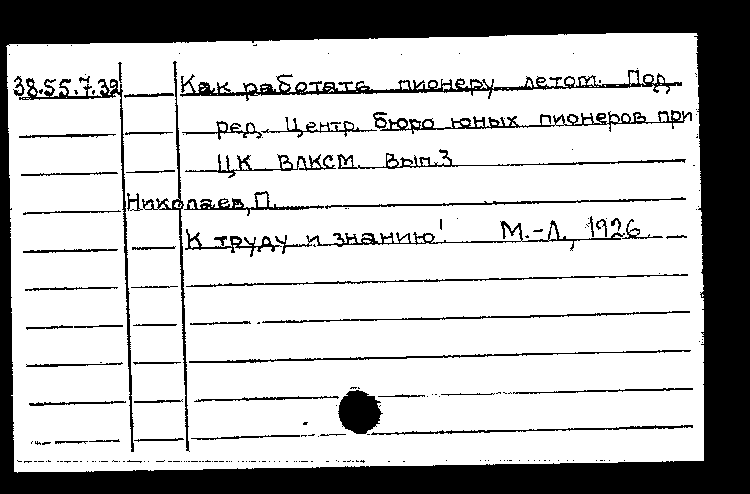 38.55.7.32 Как работать пионеру летом. Под
ред. Центр. бюро юных пионеров при
ЦК ВЛКСМ. Вып.3
Николаев, П.
К труду и знанию! М.-Л., 1926